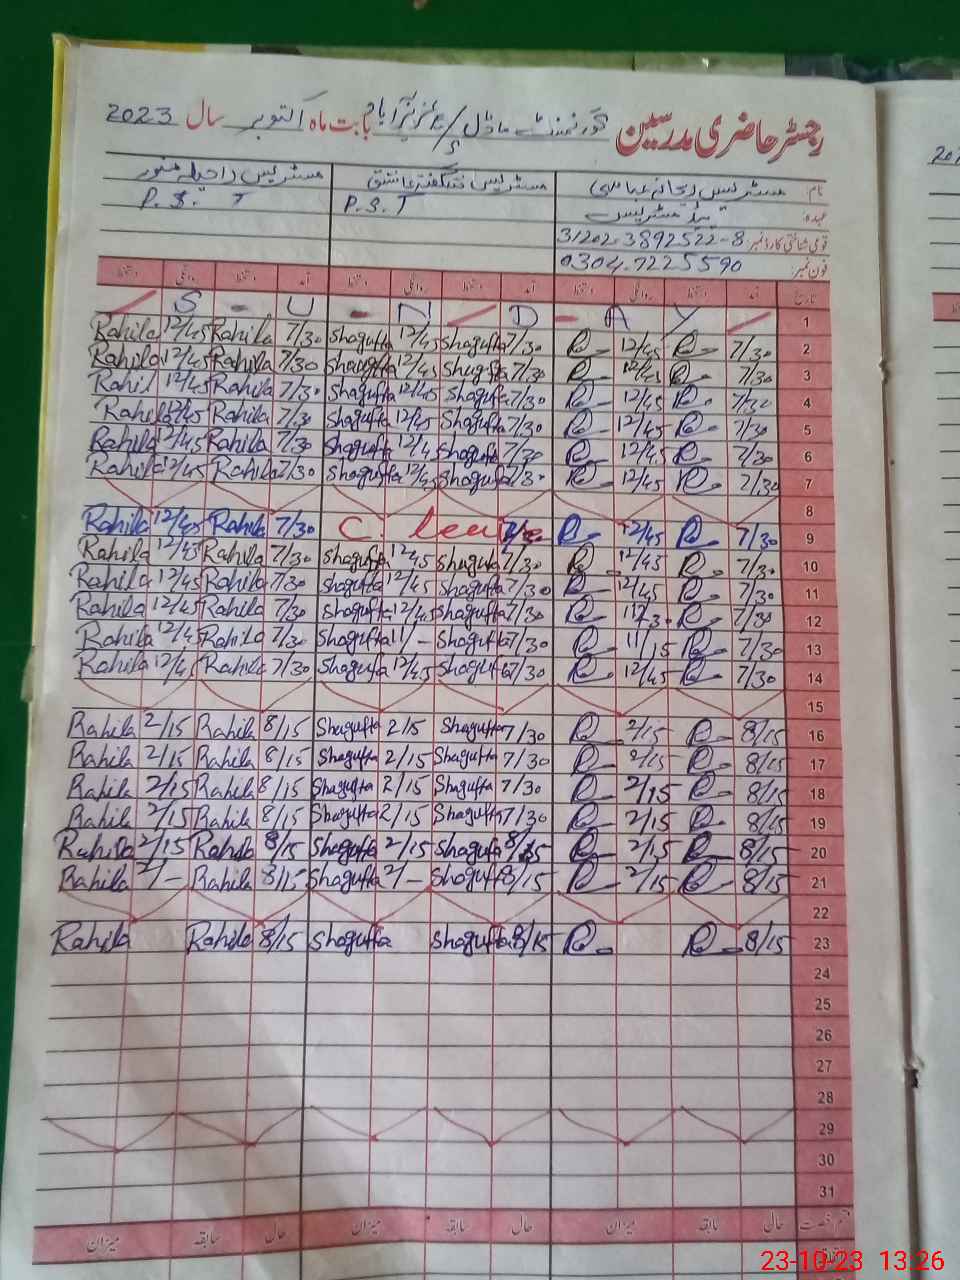 رجسٹر حاضری مدرسین گورنمنٹ ماڈل بابت ماہ اکتوبر سال 2023
نام: مسٹریس ریحانہ عباسی مسٹریس شگفتہ عاشق مسٹریس راحیلہ منور
عہدہ: ہیڈ مسٹریس P.S.T P.S.T
قومی شناختی کارڈ نمبر: 31202-3892522-8
فون نمبر: 0304-7225590
تاریخ آمد دستخط روانگی دستخط آمد دستخط روانگی دستخط آمد دستخط روانگی دستخط
S U N D A Y 1
Rahila 12/45 Rahila 7/30 Shagufta 12/45 Shagufta 7/30 R 12/45 R 7/30 2
Rahila 12/45 Rahila 7/30 Shagufta 12/45 Shagufta 7/30 R 12/45 R 7/30 3
Rahil 12/45 Rahila 7/30 Shagufta 12/45 Shagufta 7/30 R 12/45 R 7/30 4
Rahila 12/45 Rahila 7/30 Shagufta 12/45 Shagufta 7/30 R 12/45 R 7/30 5
Rahila 12/45 Rahila 7/30 Shagufta 12/45 Shagufta 7/30 R 12/45 R 7/30 6
Rahila 12/45 Rahila 7/30 Shagufta 12/45 Shagufta 7/30 R 12/45 R 7/30 7
8
Rahila 12/45 Rahila 7/30 C. leave R 12/45 R 7/30 9
Rahila 12/45 Rahila 7/30 Shagufta 12/45 Shagufta 7/30 R 12/45 R 7/30 10
Rahila 12/45 Rahila 7/30 Shagufta 12/45 Shagufta 7/30 R 12/45 R 7/30 11
Rahila 12/45 Rahila 7/30 Shagufta 12/45 Shagufta 7/30 R R 7/30 12
Rahila 12/45 Rahila 7/30 Shagufta 11/- Shagufta 7/30 R 11/15 R 7/30 13
Rahila 12/45 Rahila 7/30 Shagufta 12/45 Shagufta 7/30 R 12/45 R 7/30 14
15
Rahila 2/15 Rahila 8/15 Shagufta 2/15 Shagufta 7/30 R 2/15 R 8/15 16
Rahila 2/15 Rahila 8/15 Shagufta 2/15 Shagufta 7/30 R 2/15 R 8/15 17
Rahila 2/15 Rahila 8/15 Shagufta 2/15 Shagufta 7/30 R 2/15 R 8/15 18
Rahila 2/15 Rahila 8/15 Shagufta 2/15 Shagufta 7/30 R 2/15 R 8/15 19
Rahila 2/15 Rahila 8/15 Shagufta 2/15 Shagufta 8/15 R 2/15 R 8/15 20
Rahila 2/- Rahila 8/15 Shagufta 2/- Shagufta 8/15 R 2/15 R 8/15 21
22
Rahila Rahila 8/15 Shagufta Shagufta 8/15 R R 8/15 23
24
25
26
27
28
29
30
31
حال سابقہ میزان حال سابقہ میزان حال سابقہ میزان
23-10-23 13:26